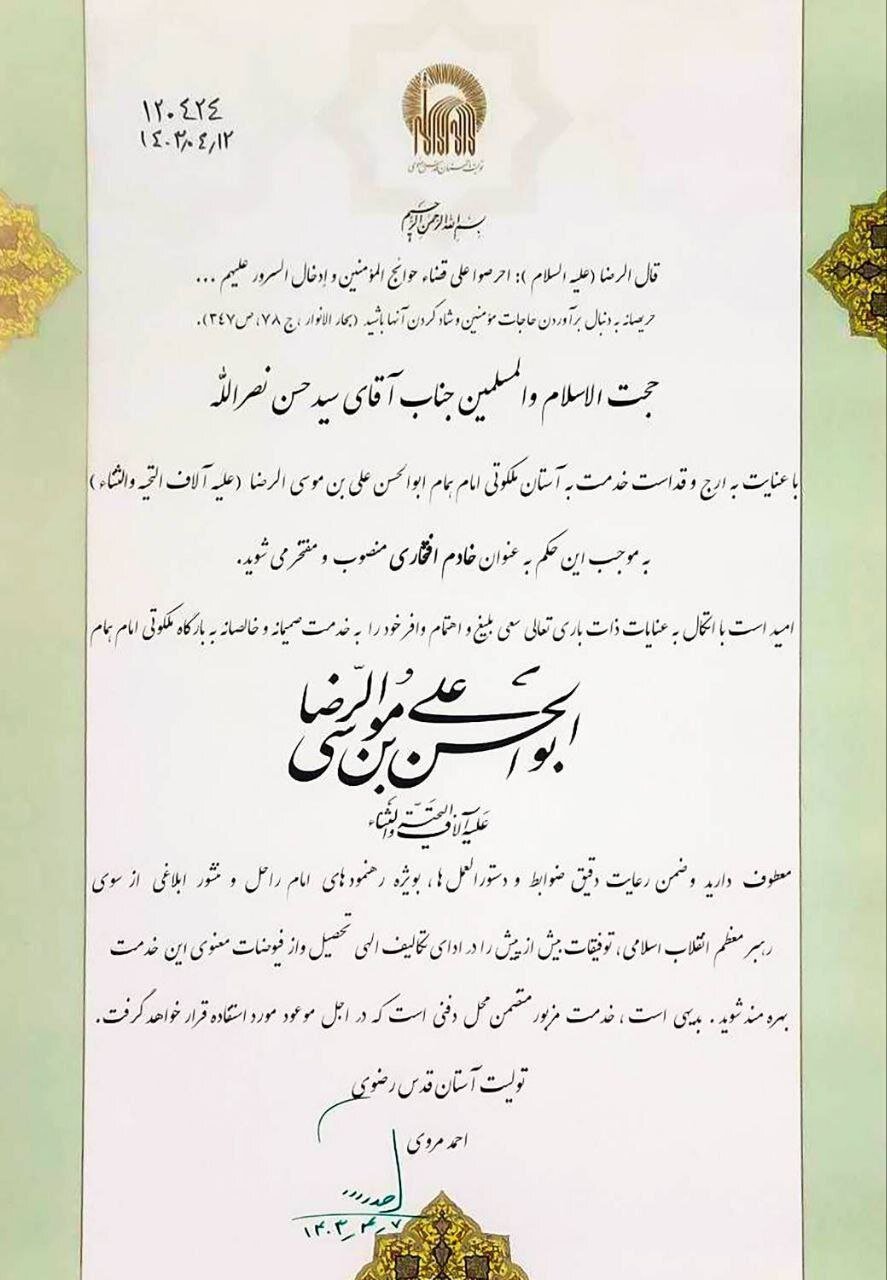 ۱۲۰۴۲۴
۱۴۰۳٫۰۴٫۱۲
تولیت آستان قدس رضوی
بسم الله الرحمن الرحیم
قال الرضا (علیه السلام): احرصوا علی قضاء حوائج المؤمنین و إدخال السرور علیهم ...
حریصانه به دنبال برآوردن حاجات مؤمنین و شاد کردن آنها باشید (بحار الانوار، ج ۷۸، ص ۳۴۷).
حجت الاسلام والمسلمین جناب آقای سید حسن نصرالله
با عنایت به ارج و قداست خدمت به آستان ملکوتی امام همام ابوالحسن علی بن موسی الرضا (علیه آلاف التحیه والثناء)
به موجب این حکم به عنوان خادم افتخاری منصوب و مفتخر می شوید.
امید است با اتکال به عنایات ذات باری تعالی سعی بلیغ و اهتمام وافر خود را به خدمت صمیمانه و خالصانه به بارگاه ملکوتی امام همام
ابوالحسن علی بن موسی الرضا
علیه آلاف التحیة والثناء
معطوف دارید وضمن رعایت دقیق ضوابط و دستورالعمل ها، بویژه رهنمودهای امام راحل و منشور ابلاغی از سوی
رهبر معظم انقلاب اسلامی، توفیقات بیش از پیش را در ادای تکالیف الهی تحصیل واز فیوضات معنوی این خدمت
بهره مند شوید. بدیهی است، خدمت مزبور متضمن محل دفنی است که در اجل موعود مورد استفاده قرار خواهد گرفت.
تولیت آستان قدس رضوی
احمد مروی
۱۴۰۳٫۴٫۷